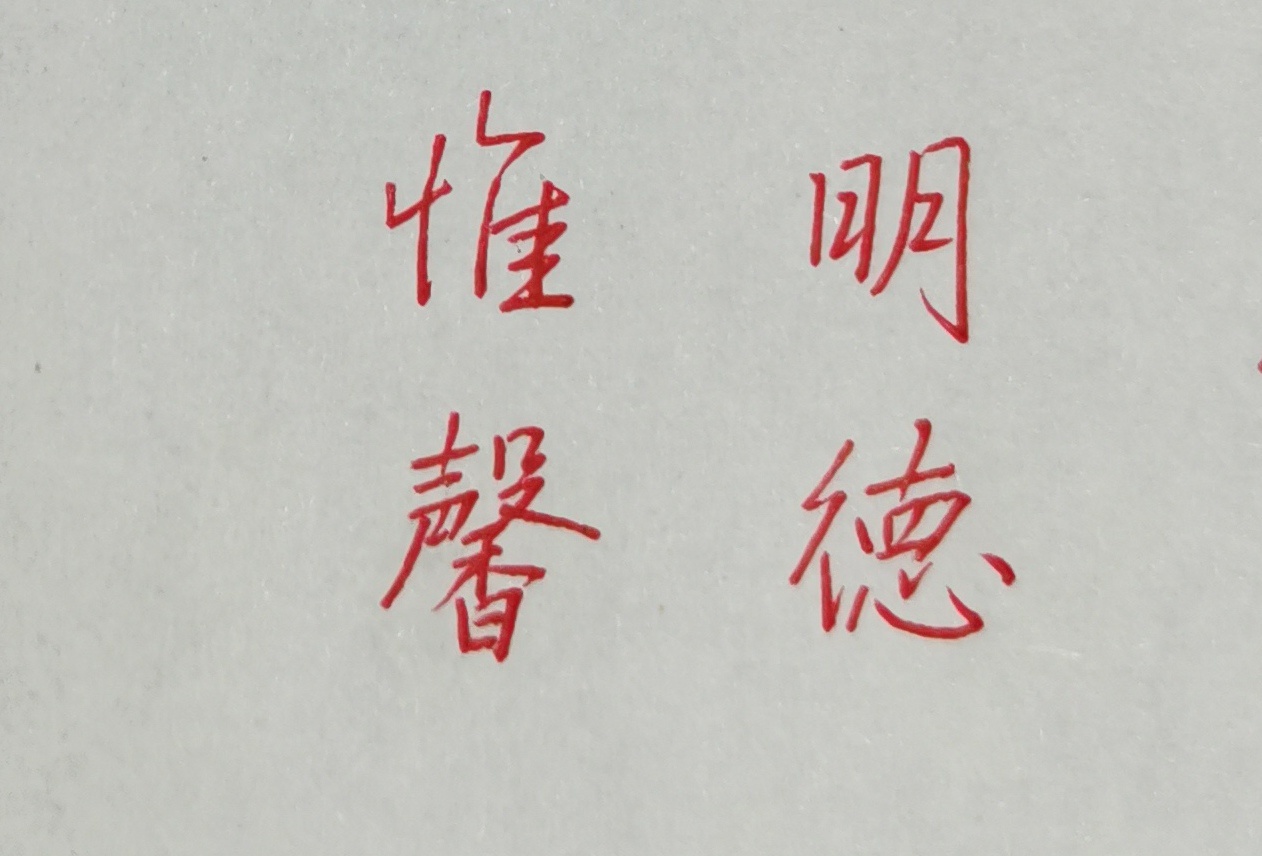 明德
惟馨